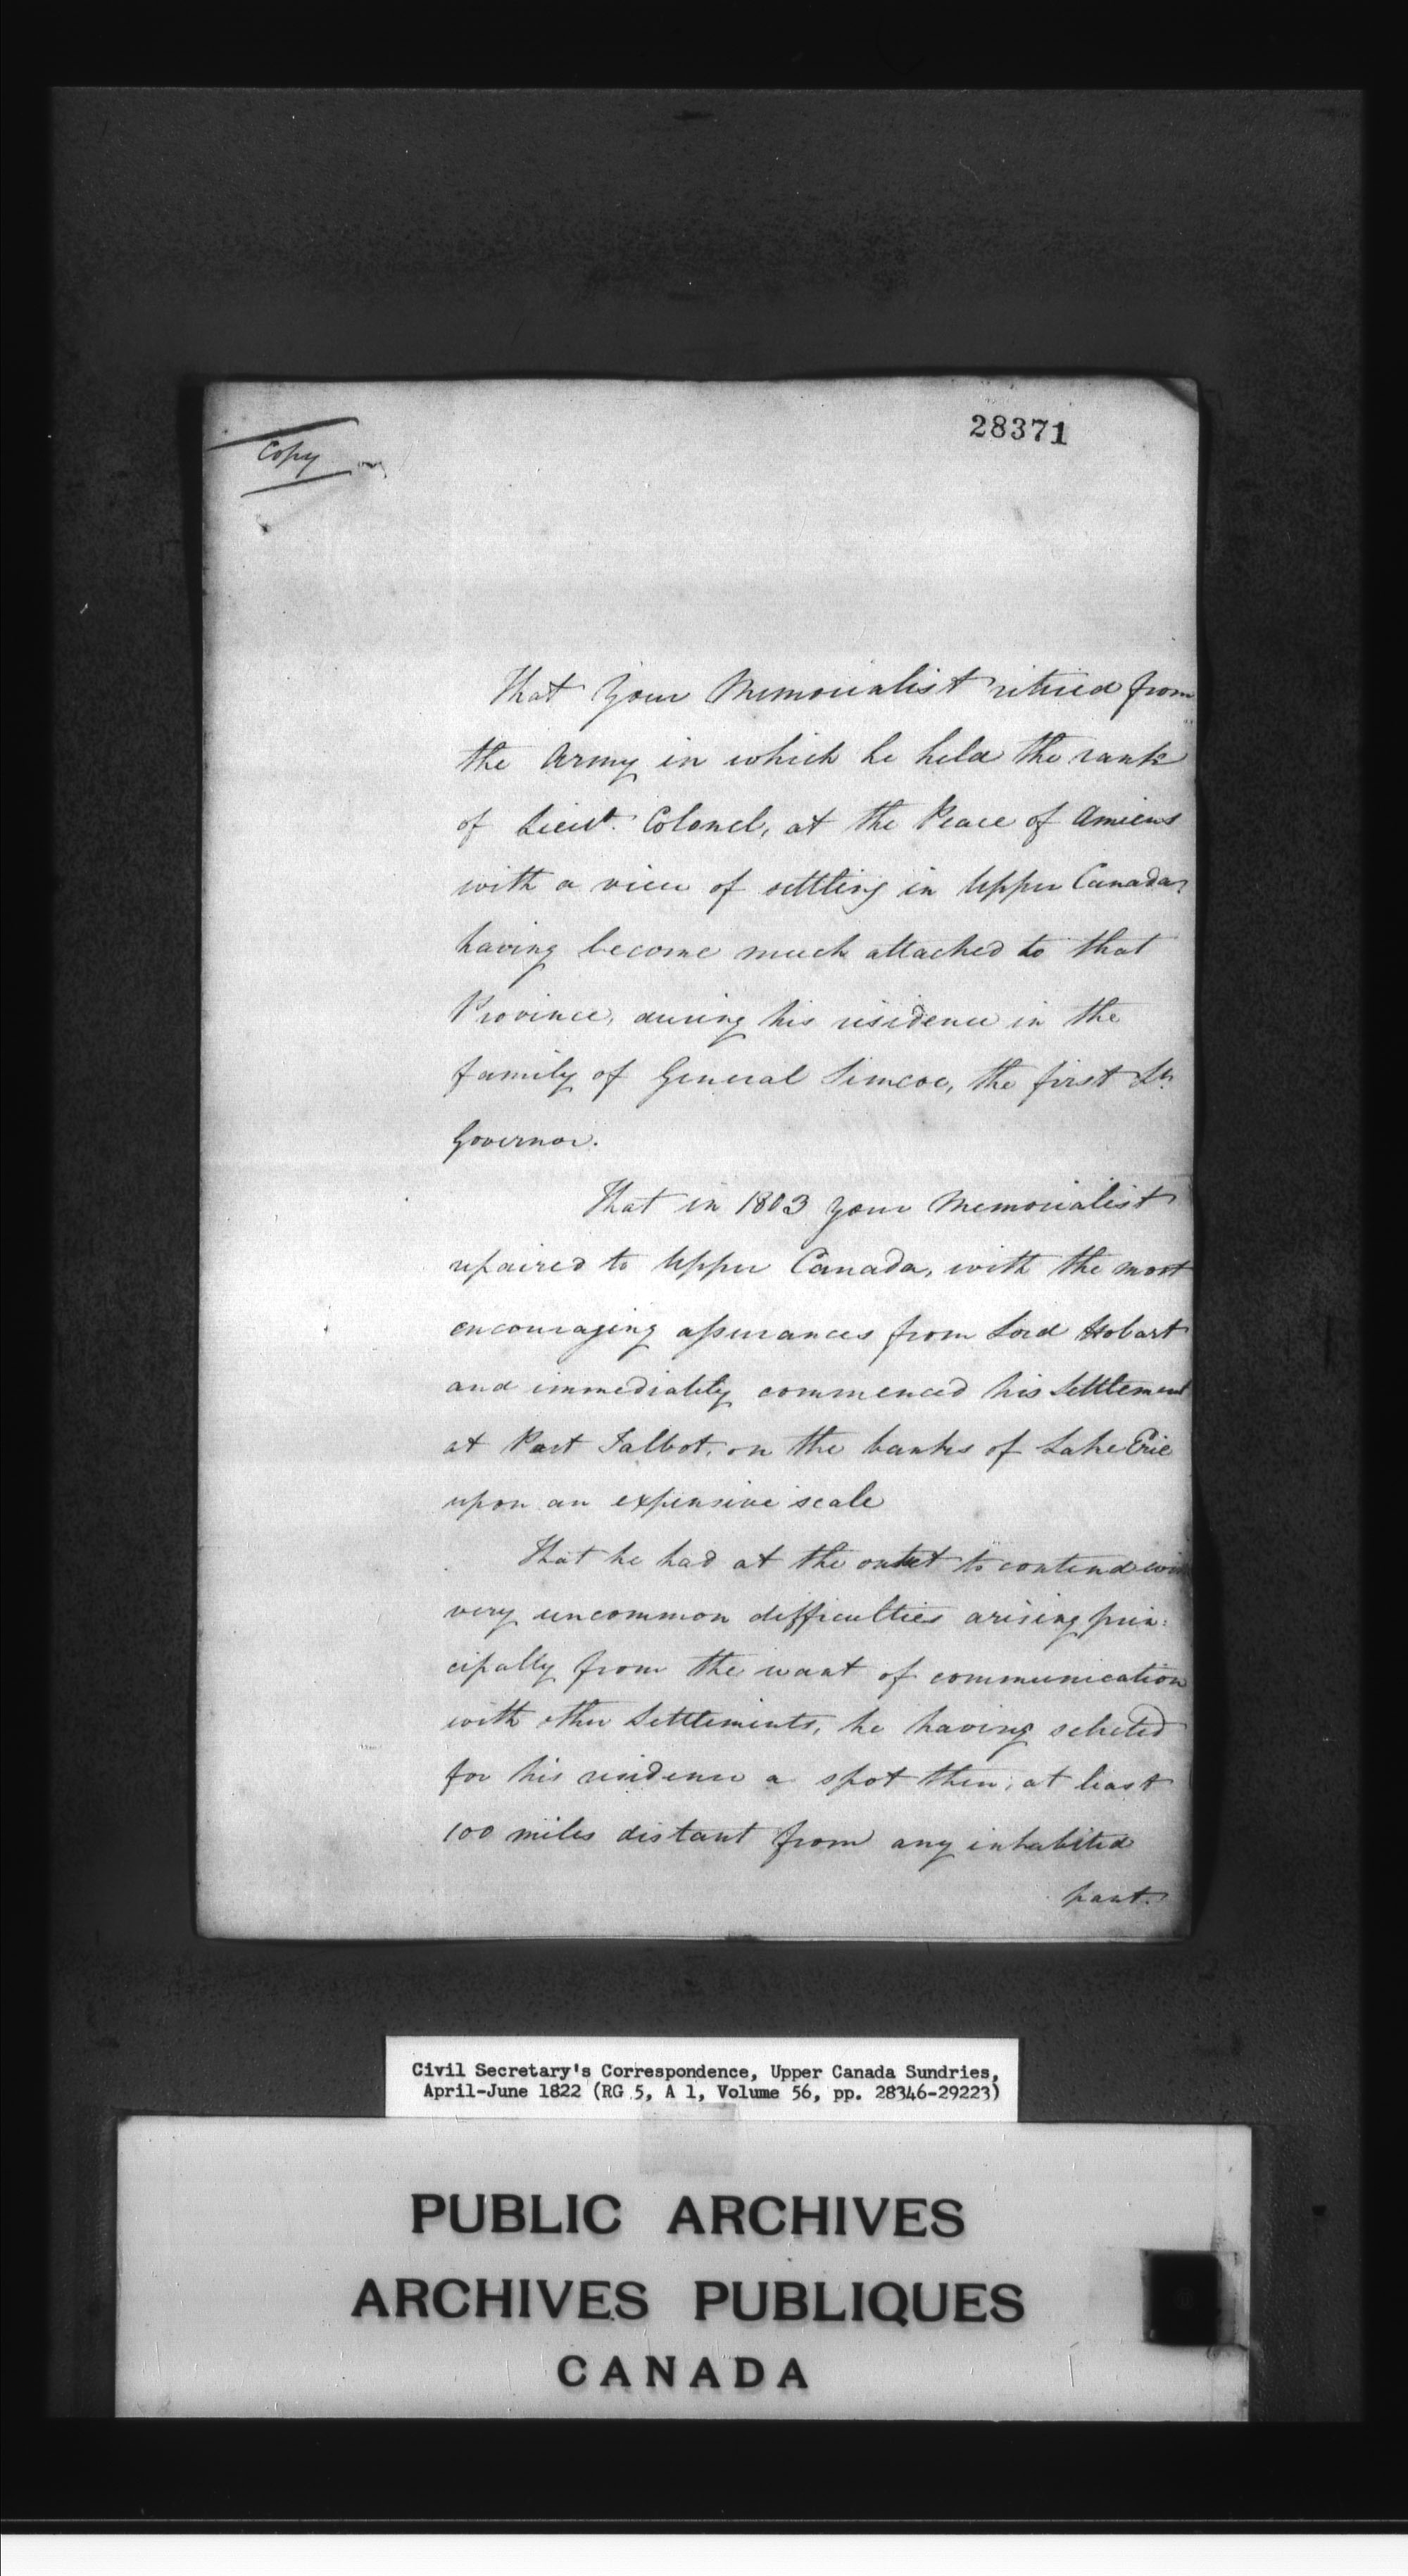 Copy
28371
That Your Memorialist retired from
the Army in which he held the rank
of Lieut. Colonel, at the Peace of Amiens
with a view of settling in Upper Canada,
having become much attached to that
Province, during his residence in the
family of General Simcoe, the first Lt.
Governor.
That in 1803 your Memorialist
repaired to Upper Canada, with the most
encouraging assurances from Lord Hobart
and immediately commenced his Settlement
at Port Talbot, on the banks of Lake Erie
upon an expensive scale
That he had at the outset to contend with
very uncommon difficulties arising prin:
cipally from the want of communication
with other Settlements, he having selected
for his residence a spot then, at least
100 miles distant from any inhabited
part.
Civil Secretary's Correspondence, Upper Canada Sundries,
April-June 1822 (RG 5, A 1, Volume 56, pp. 28346-29223)
PUBLIC ARCHIVES
ARCHIVES PUBLIQUES
CANADA